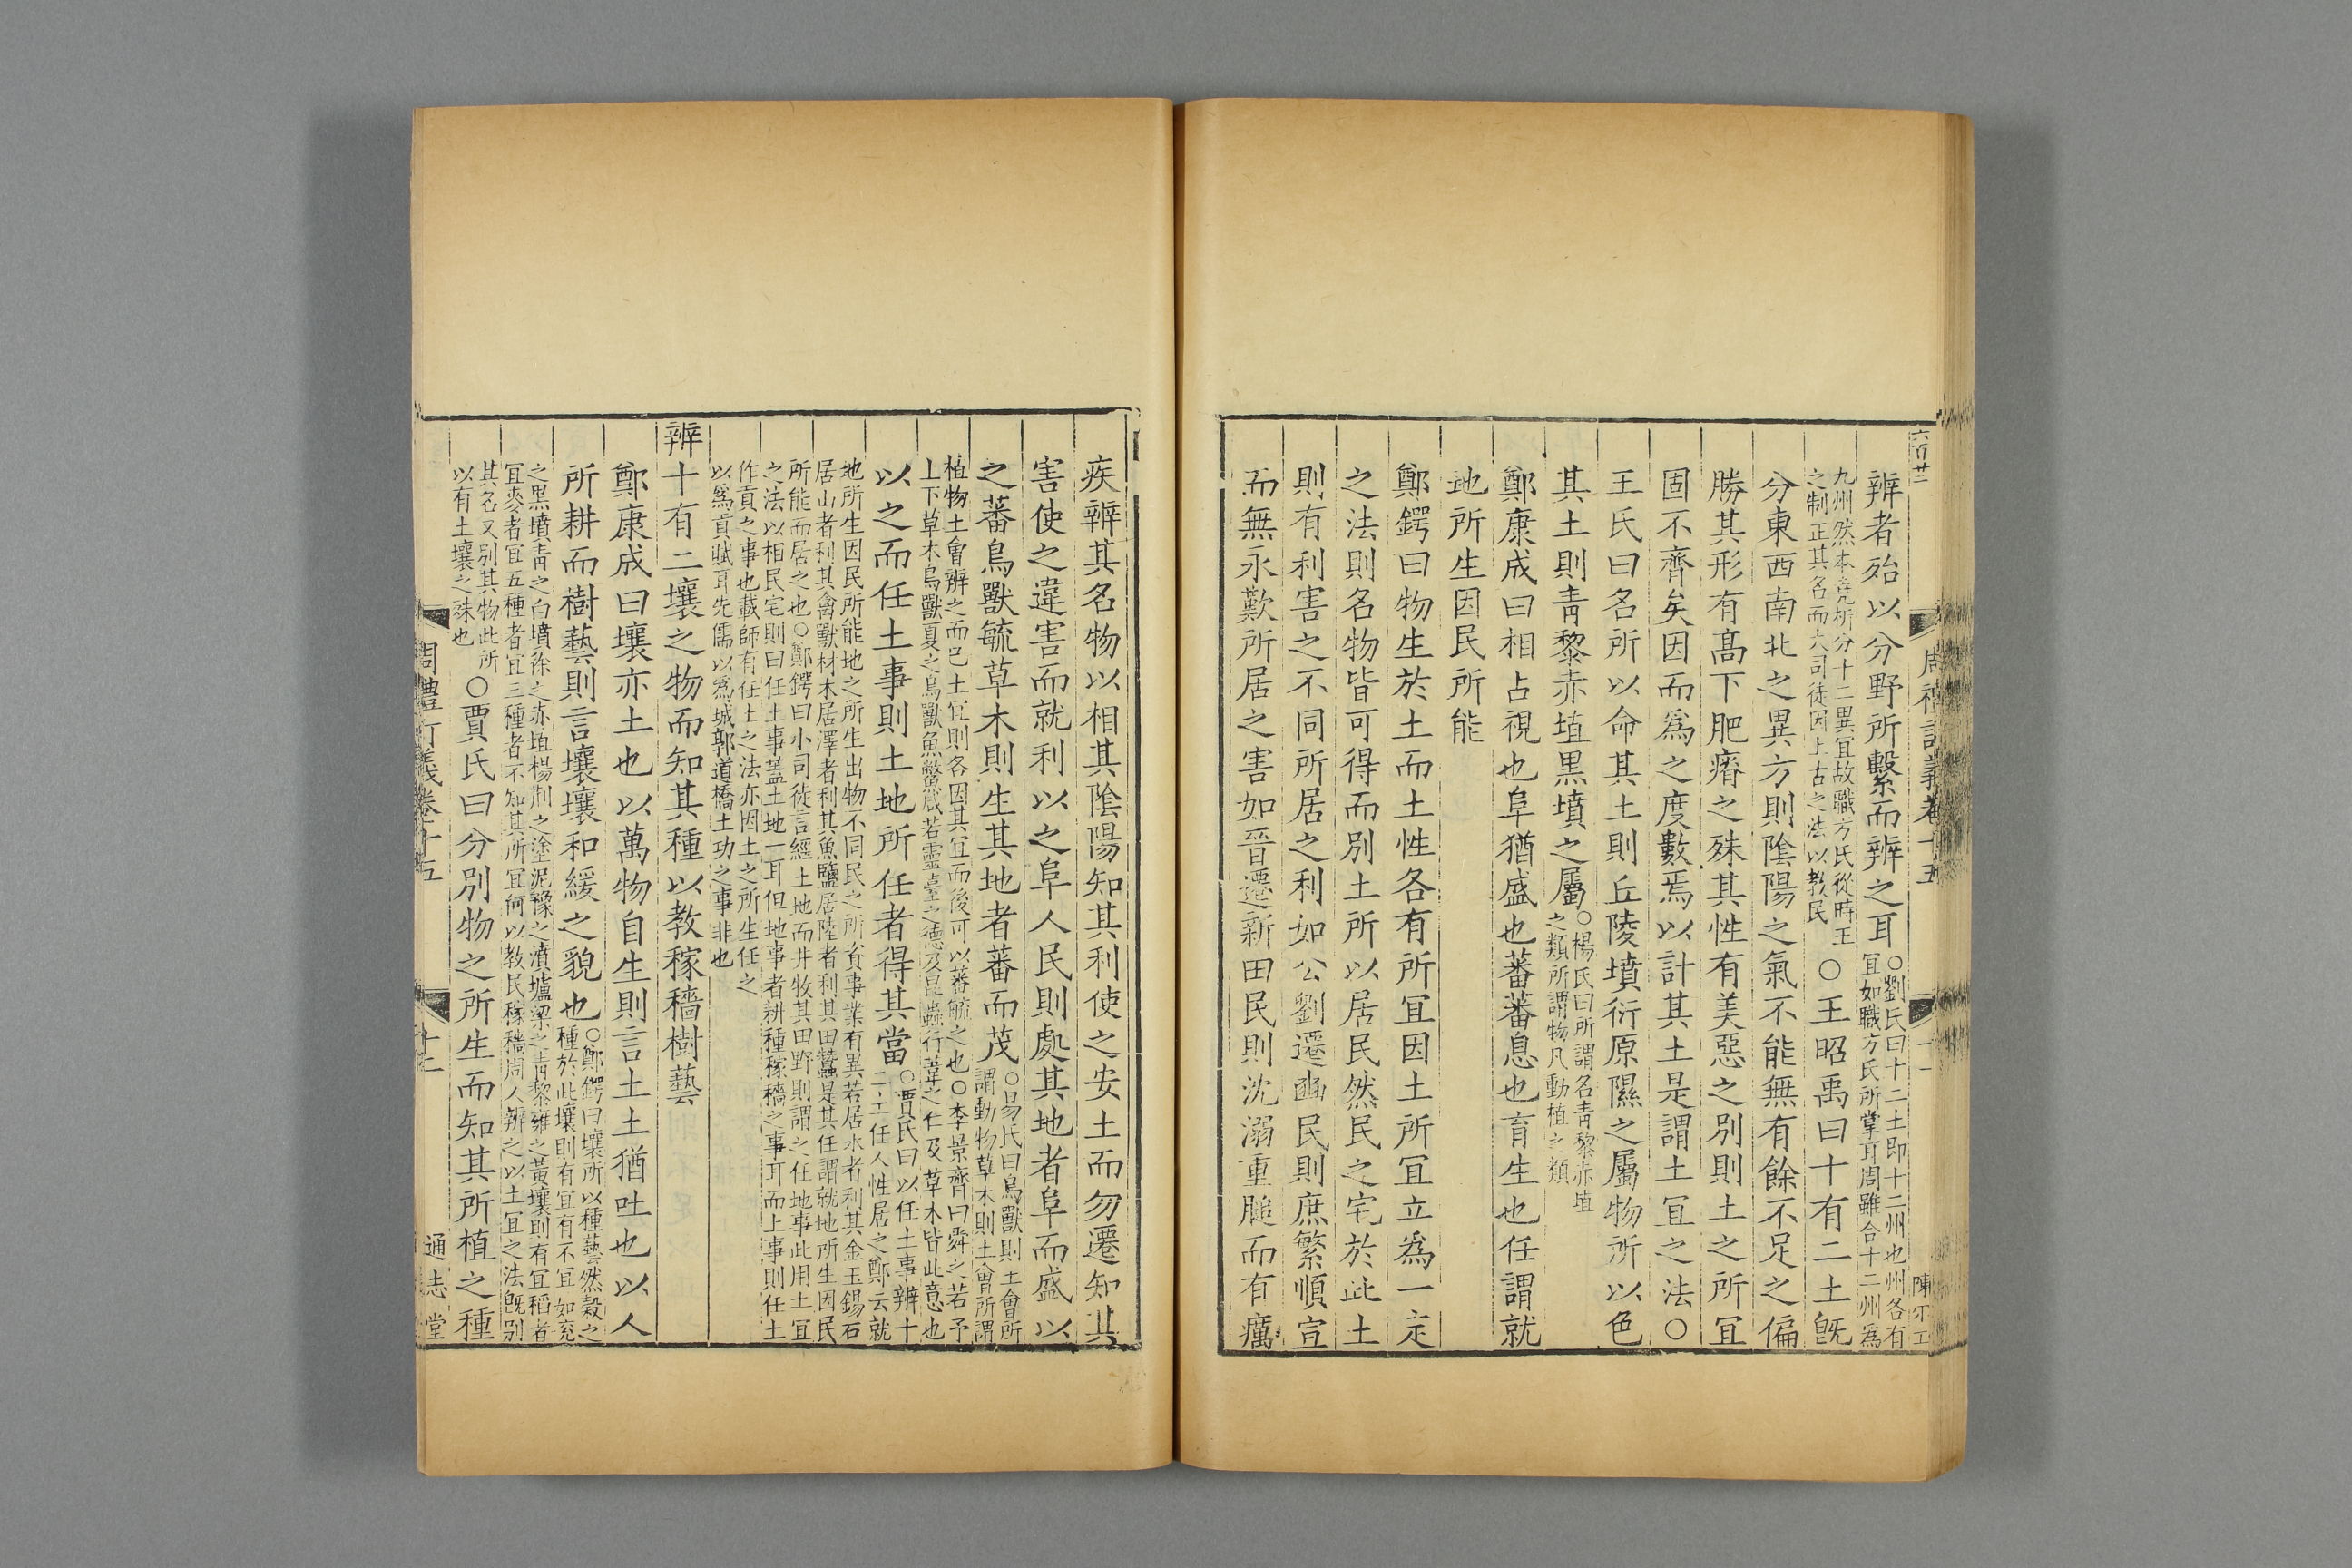 六百廿二
周禮訂義卷十五
十一
辨者殆以分野所繫而辨之耳○劉氏曰十二土即十二州也州各有
宜如職方氏所掌耳周雖合十二州爲
九州然本堯析分十二異宜故職方氏從時王
之制正其名而大司徒因上古之法以教民○王昭禹曰十有二土旣
分東西南北之異方則陰陽之氣不能無有餘不足之偏
勝其形有高下肥瘠之殊其性有美惡之別則土之所宜
固不齊矣因而爲之度數焉以計其土是謂土宜之法○
王氏曰名所以命其土則丘陵墳衍原隰之屬物所以色
其土則靑黎赤埴黑墳之屬○楊氏曰所謂名靑黎赤埴
之類所謂物凡動植之類
鄭康成曰相占視也阜猶盛也蕃蕃息也育生也任謂就
地所生因民所能
鄭鍔曰物生於土而土性各有所宜因土所宜立爲一定
之法則名物皆可得而別土所以居民然民之宅於此土
則有利害之不同所居之利如公劉遷豳民則庶繁順宣
而無永歎所居之害如晉遷新田民則沈溺重膇而有癘
疾辨其名物以相其陰陽知其利使之安土而勿遷知其
害使之違害而就利以之阜人民則處其地者阜而盛以
之蕃鳥獸毓草木則生其地者蕃而茂○易氏曰鳥獸則土會所
謂動物草木則土會所謂
植物土會辨之而已土宜則各因其宜而後可以蕃毓之也○李景齊曰舜之若予
上下草木鳥獸夏之鳥獸魚鼈咸若靈臺之德及昆蟲行葦之仁及草木皆此意也
以之而任土事則土地所任者得其當○賈氏曰以任土事辨十
二土任人性居之鄭云就
地所生因民所能地之所生出物不同民之所資事業有異若居水者利其金玉錫石
居山者利其禽獸材木居澤者利其魚鹽居陸者利其田蠶是其任謂就地所生因民
所能而居之也○鄭鍔曰小司徒言經土地而井牧其田野則謂之任地事此用土宜
之法以相民宅則曰任土事蓋土地一耳但地事者耕種稼穡之事耳而上事則任土
作貢之事也載師有任土之法亦因土之所生任之
以爲貢賦耳先儒以爲城郭道橋土功之事非也
辨十有二壤之物而知其種以敎稼穡樹藝
鄭康成曰壤亦土也以萬物自生則言土土猶吐也以人
所耕而樹藝則言壤壤和緩之貌也○鄭鍔曰壤所以種藝然穀之
種於此壤則有宜有不宜如兖
之黑墳靑之白墳徐之赤埴楊荆之塗泥豫之濆壚梁之靑黎雍之黃壤則有宜稻者
宜麥者宜五種者宜三種者不知其所宜何以敎民稼穡周人辨之以土宜之法旣別
其名又別其物此所
以有土壤之殊也○賈氏曰分別物之所生而知其所植之種
周禮訂義卷十五
十二
通志堂